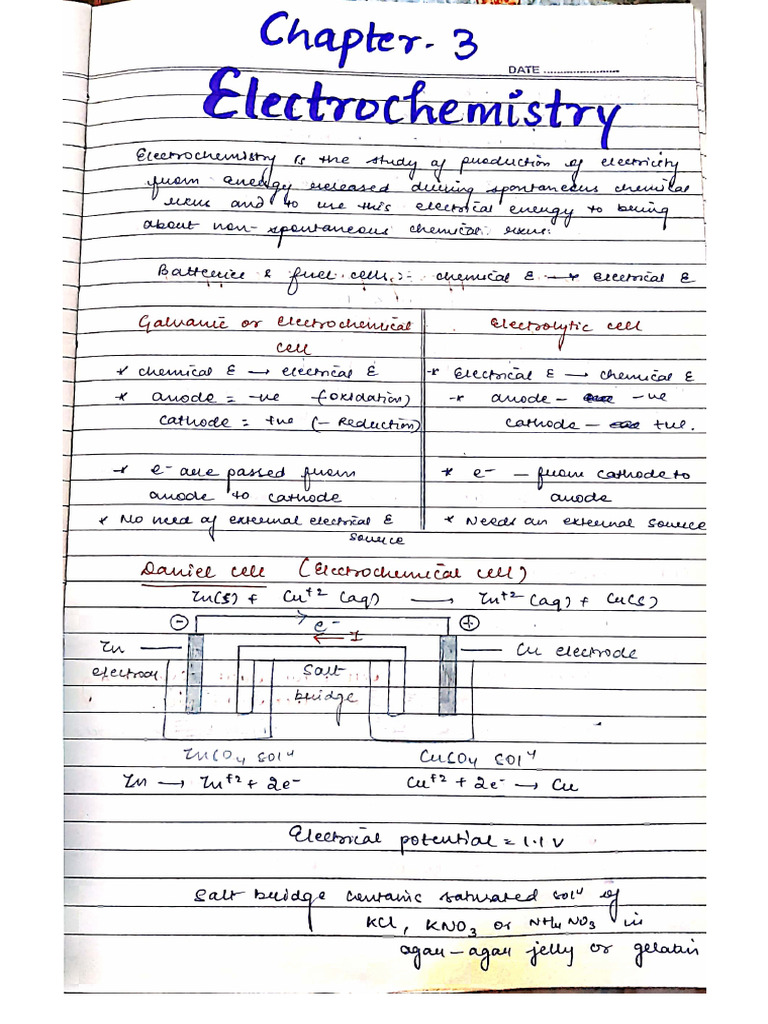 Chapter. 3
DATE ........................
Electrochemistry
Electrochemistry is the study of production of electricity
from energy released during spontaneous chemical
rexns and to use this electrical energy to bring
about non-spontaneous chemical rexns.
Batteries & fuel cells :- chemical E → electrical E
Galvanic or electrochemical cell
* chemical E → electrical E
* anode = -ve (oxidation)
cathode = +ve (- Reduction)
* e- are passed from
anode to cathode
* No need of external electrical E
source
Electrolytic cell
* Electrical E → chemical E
* anode - -ve
cathode - +ve.
* e- - from cathode to
anode
* Needs an external source
Daniel cell (Electrochemical cell)
Zn(s) + Cu+2 (aq) → Zn+2 (aq) + Cu(s)
- e- +
← I
Zn
electrod
Salt
bridge
Cu electrode
ZnCO4 solⁿ
CuCO4 solⁿ
Zn → Zn+2 + 2e-
Cu+2 + 2e- → Cu
Electrical potential = 1.1 V
Salt bridge contanic saturated solⁿ of
KCl, KNO3 or NH4NO3 in
agar-agar jelly or gelatin